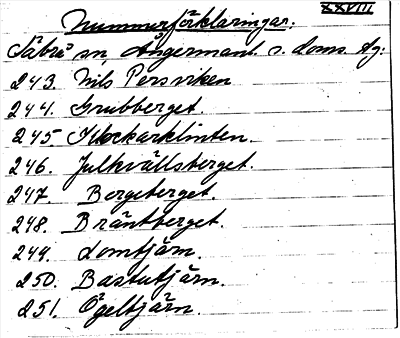 XXVIII
Nummerförklaringar.
Säbrå sn, Ångermanl. s. doms. Ag.
243. Nils Persviken
244. Grubberget.
245 Stockarklinten.
246. Julkvällsberget.
247. Bergeberget.
248. Bräntberget.
249. Lomtjärn.
250. Bastutjärn.
251. Ögeltjärn.